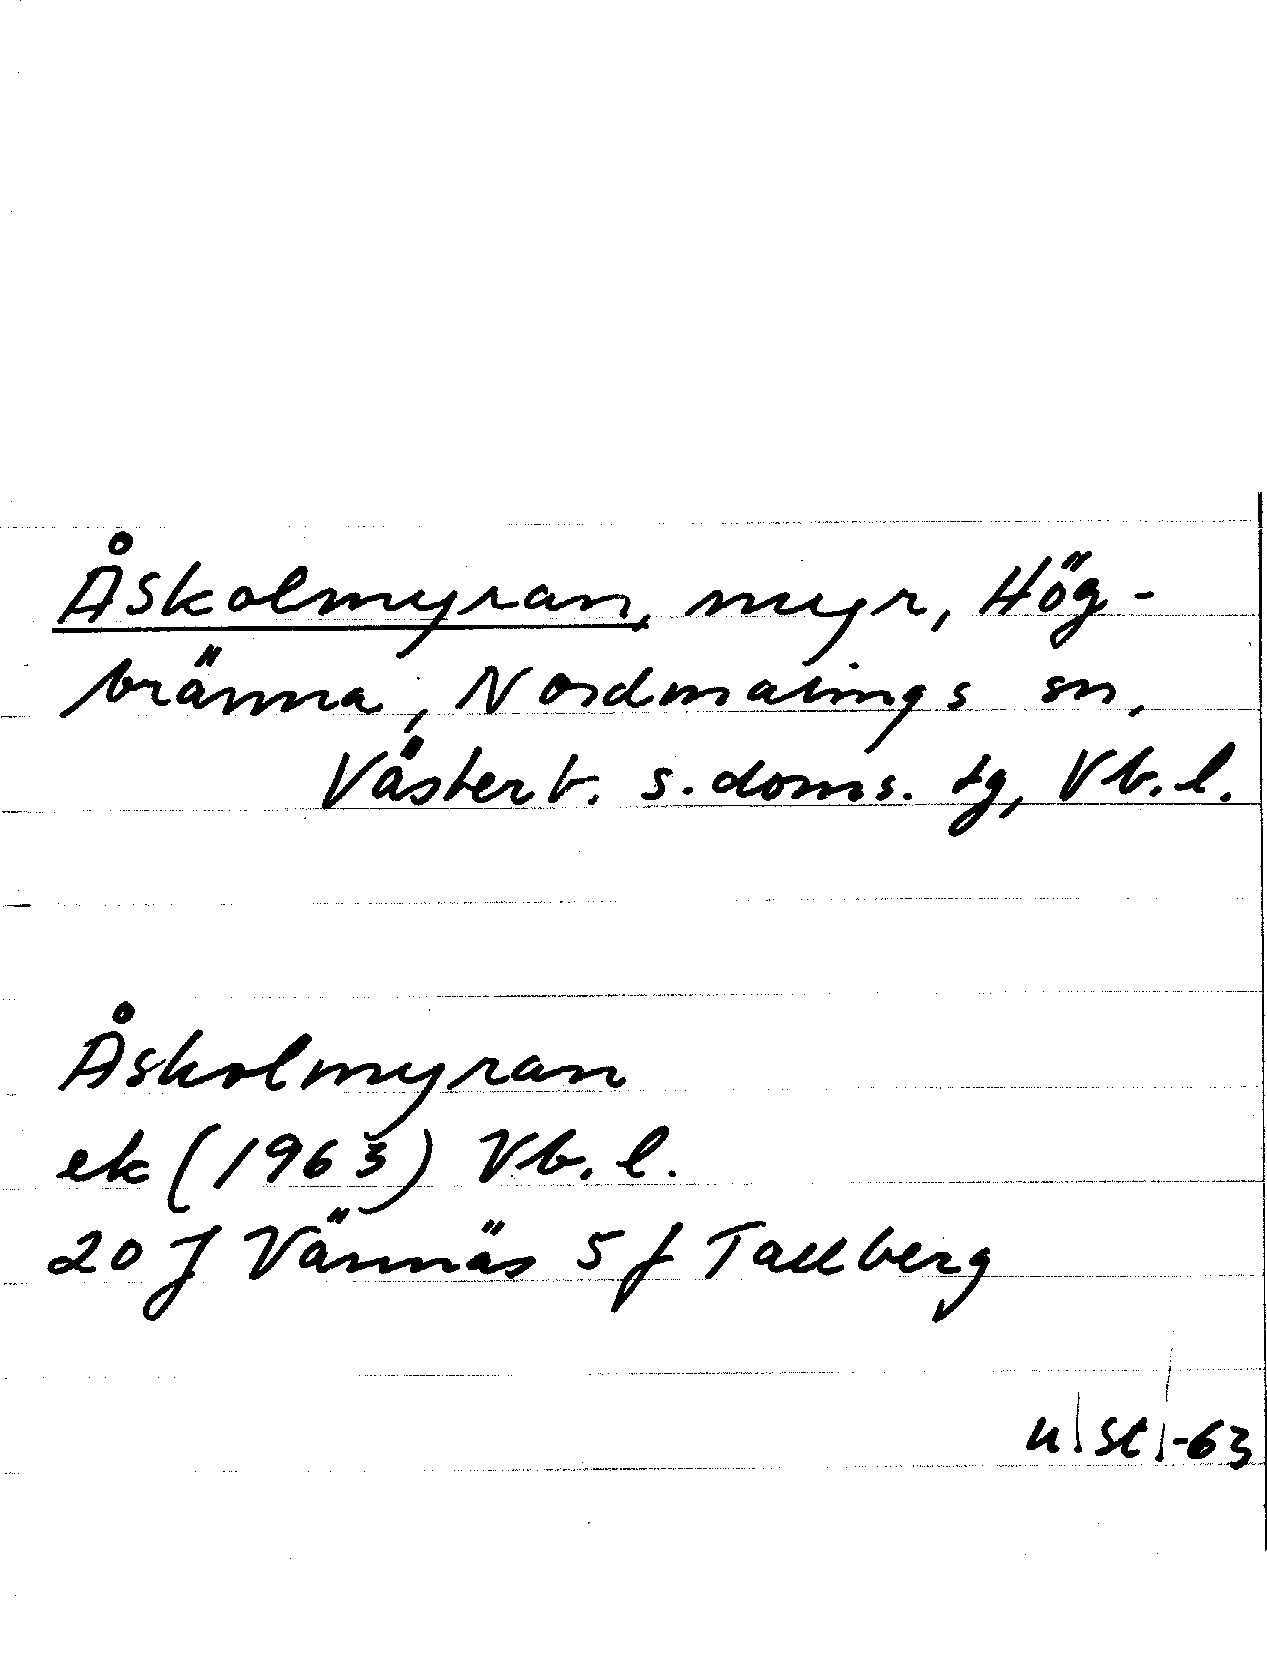 Åskolmyran, myr, Hög-
bränna, Nordmalings sn,
Västerb. s. doms. tg, Vb. l.
Åskolmyran
ek (1963) Vb. l.
20 J Vännäs 5 f Tallberg
u/St/-63